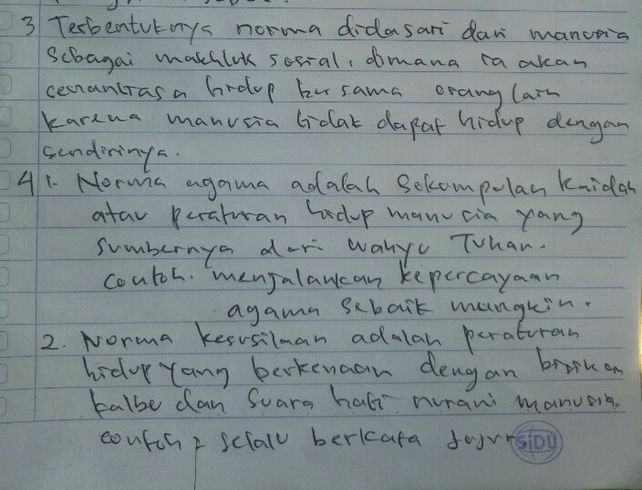 3 Terbentuknya norma didasari dari manusia
sebagai makhluk sosial, dimana ia akan
senantiasa hidup bersama orang lain
karena manusia tidak dapat hidup dengan
sendirinya.
4 1. Norma agama adalah sekumpulan kaidah
atau peraturan hidup manusia yang
sumbernya dari wahyu Tuhan.
contoh. menjalankan kepercayaan
agama sebaik mungkin.
2. Norma kesusilaan adalah peraturan
hidup yang berkenaan dengan bisikan
kalbu dan suara hati nurani manusia.
contoh = selalu berkata jujur SiDU